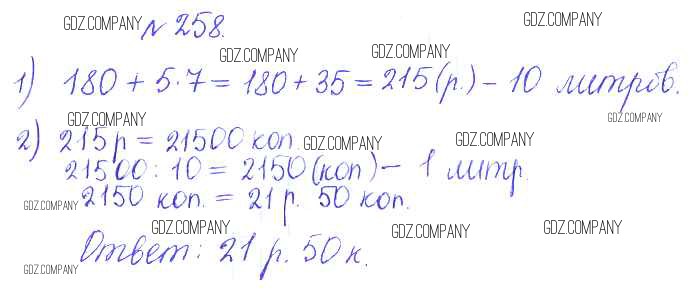 GDZ.COMPANY № 258. GDZ.COMPANY
GDZ.COMPANY GDZ.COMPANY
1) 180 + 5·7 = 180 + 35 = 215 (р.) – 10 литров.
GDZ.COMPANY GDZ.COMPANY
2) 215 р = 21500 коп. GDZ.COMPANY GDZ.COMPANY
21500 : 10 = 2150 (коп) – 1 литр.
GDZ.COMPANY 2150 коп. = 21 р. 50 коп.
GDZ.COMPANY GDZ.COMPANY GDZ.COMPANY
Ответ: 21 р. 50 к.
GDZ.COMPANY